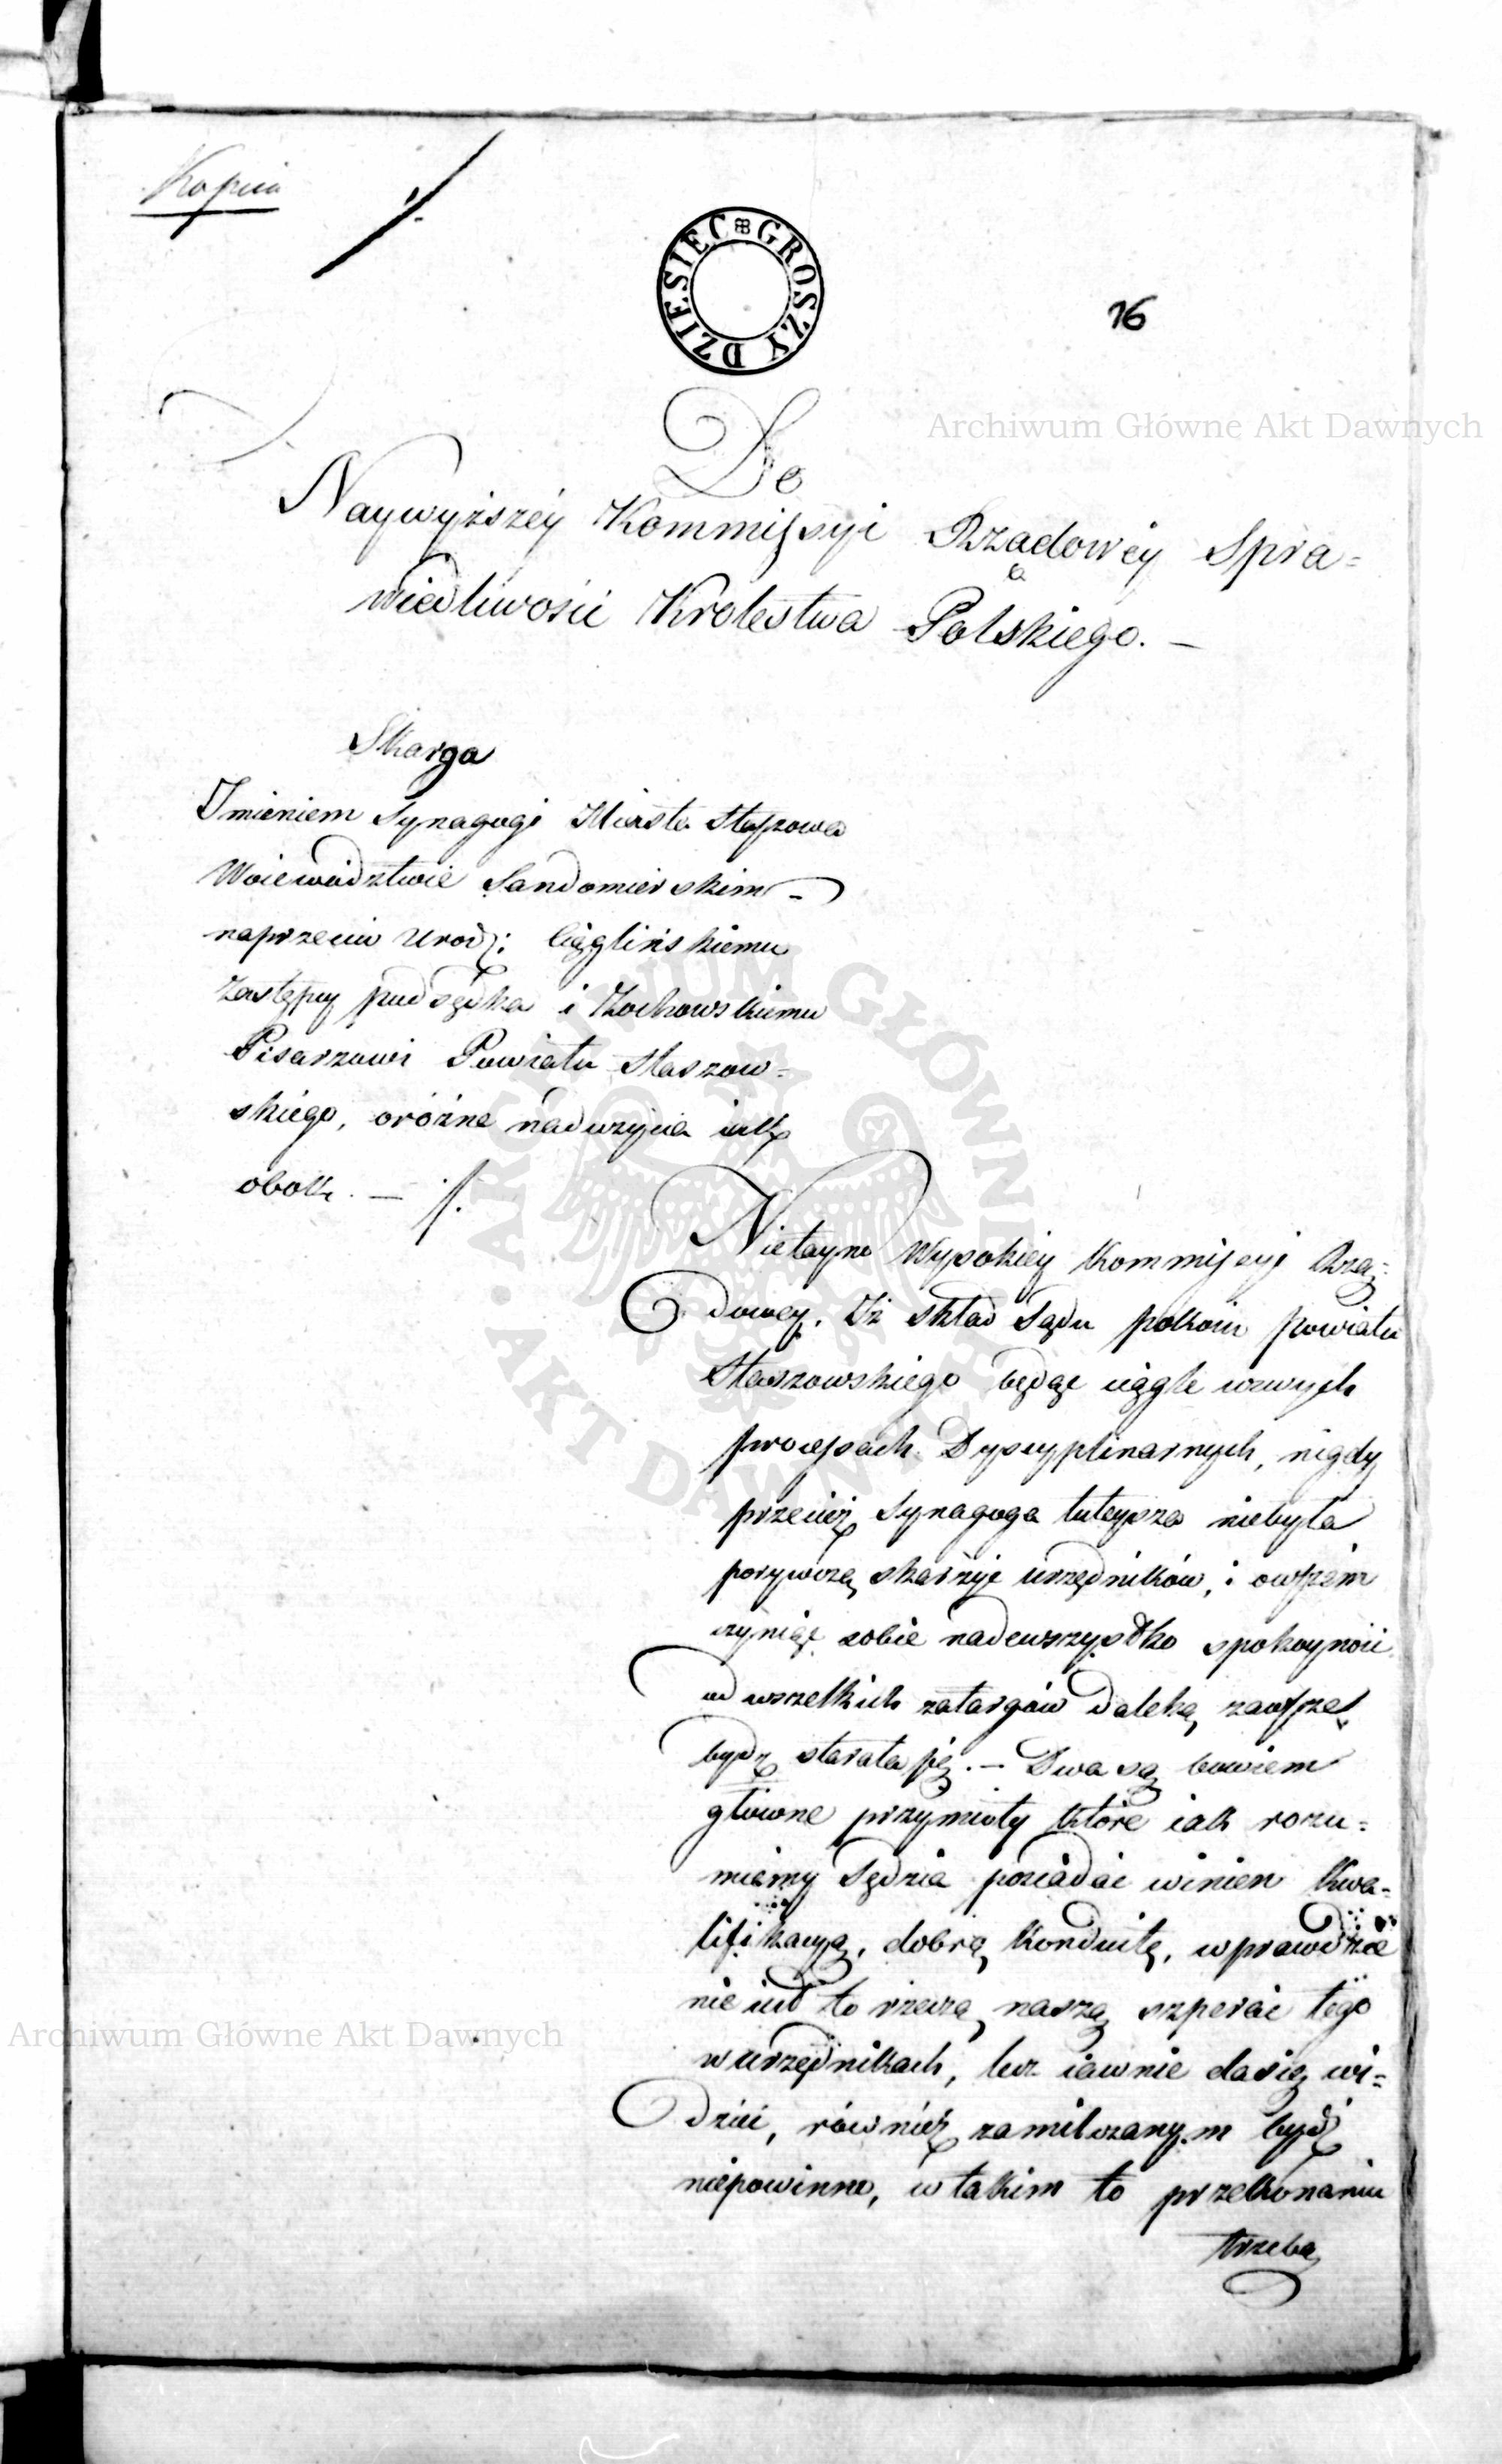 Kopia
1.
DZIESIEC GROSZY
16
Archiwum Główne Akt Dawnych
Do
Naywyższéy Kommissyi Rządowéy Spra=
wiedliwości Krolestwa Polskiego. —
Skarga
Imieniem Synagogi Miasta Stassowa
Woiewództwie Sandomierskim -
naprzeciw Urodz: Ciąglińskiemu
Zastępcy podsędka i Żochowskiemu
Pisarzowi Powiatu Staszow=
skiego, o różne nadużycia iak
obok. — /.
Nietayno Wysokiey Kommissyi Rzą=
dowey. Iż skład Sądu pokoiu powiatu
Staszowskiego będąc ciągle w
processach Dyscyplinarnych, nigdy
przecież Synagoga tuteysza niebyła
porywczą skarżyć urzędników, i owszem
czyniąc sobie nadewszystko spokoyność
od wszelkich zatargów daleką zawsze
bydź starała się. — Dwa są bowiem
główne przymioty które iak rozu=
miemy Sędzia posiadać winien kwa=
lifikacyą, dobrą konduitę, wprawdzie
nie iest to rzeczą naszą szperać tego
w urzędnikach, lecz iawnie da się wi=
dzieć, również zamilczanym bydź
niepowinno, w takim to przekonaniu
trzeba
Archiwum Główne Akt Dawnych
ARCHIWUM GŁÓWNE AKT DAWNYCH